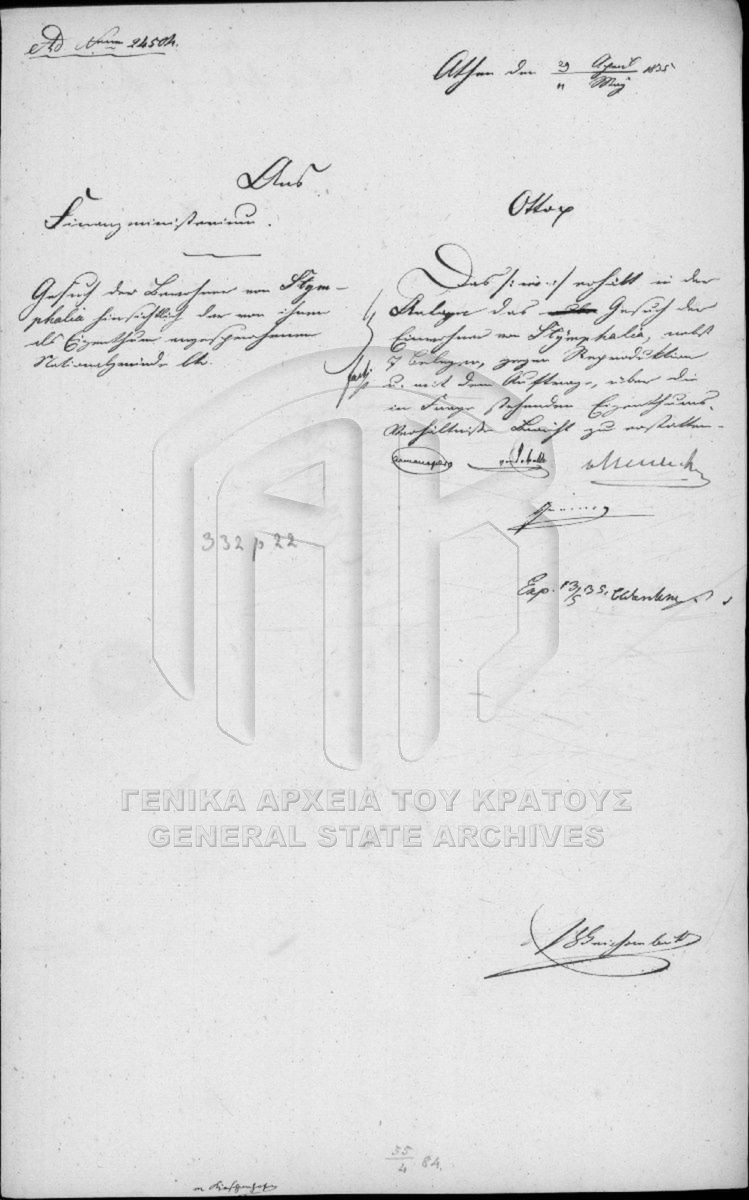 Ad Num 24504.
Athen den 29 April / 11 May 1835
Ans
Finanzministerium.
Gesuch der Bewohner von Stym-
phalia hinsichtlich der von ihnen
als Eigenthum angesprochenen
Nationalgründe btr.
Otto p
Das /: tit :/ erhält in der
Anlage das Gesuch der
Einwohner von Stymphalia, nebst
7 Belegen, gegen Reproduktion
u. mit dem Auftrage, über die
in Frage stehenden Eigenthums-
Verhältniße Bericht zu erstatten.
332 p 22
Exp. 13/5 35.
ΓΕΝΙΚΑ ΑΡΧΕΙΑ ΤΟΥ ΚΡΑΤΟΥΣ
GENERAL STATE ARCHIVES
55/4 84.